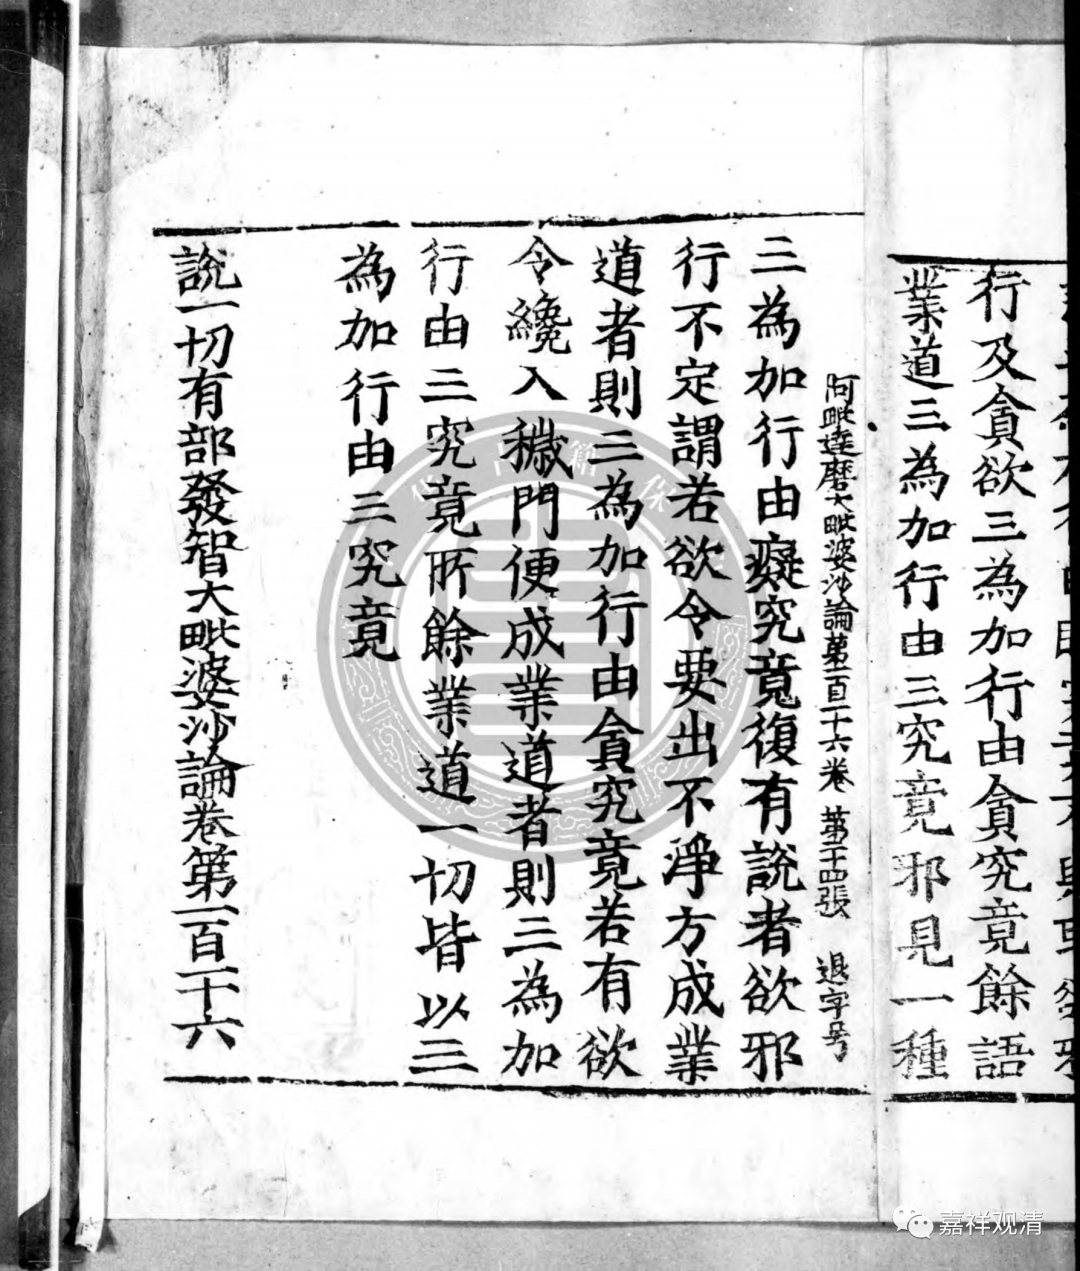 行及貪欲三為加行由貪究竟餘語
業道三為加行由三究竟邪見一種
阿毗達磨大毗婆沙論第一百一十六卷 第二十四張 退字号
三為加行由癡究竟復有說者欲邪
行不定謂若欲令要出不淨方成業
道者則三為加行由貪究竟若有欲
令纔入穢門便成業道者則三為加
行由三究竟所餘業道一切皆以三
為加行由三究竟
說一切有部發智大毗婆沙論卷第一百一十六
嘉祥观清